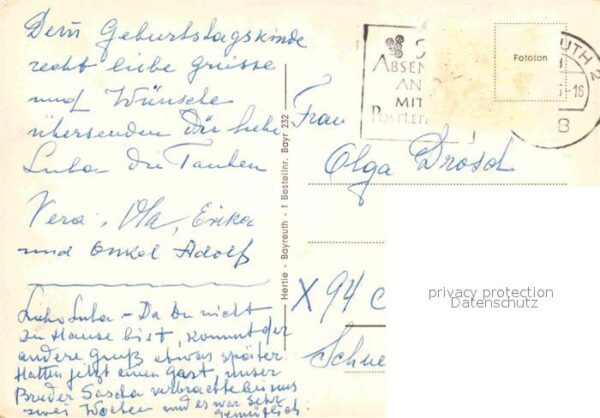 Dem Geburtstagskinde
recht liebe Grüsse
und Wünsche
übersenden Dir liebe
Luba die Tanten
Vera, Ola, Erika
und Onkel Adolf
Liebe Luba - Da Du nicht
zu Hause bist, kommt der
andere Gruß etwas später.
Hatten jetzt einen Gast, unser
Bruder Sascha verbrachte bei uns
zwei Wochen und es war sehr
gemütlich!
Hertie - Bayreuth - f Bestellnr. Bayr 232
ABSEN
AN
MIT
POSTLEI
Fototon
UTH 2
-16
8
Frau
Olga Drosch
X 94 C
Schne
privacy protection
Datenschutz